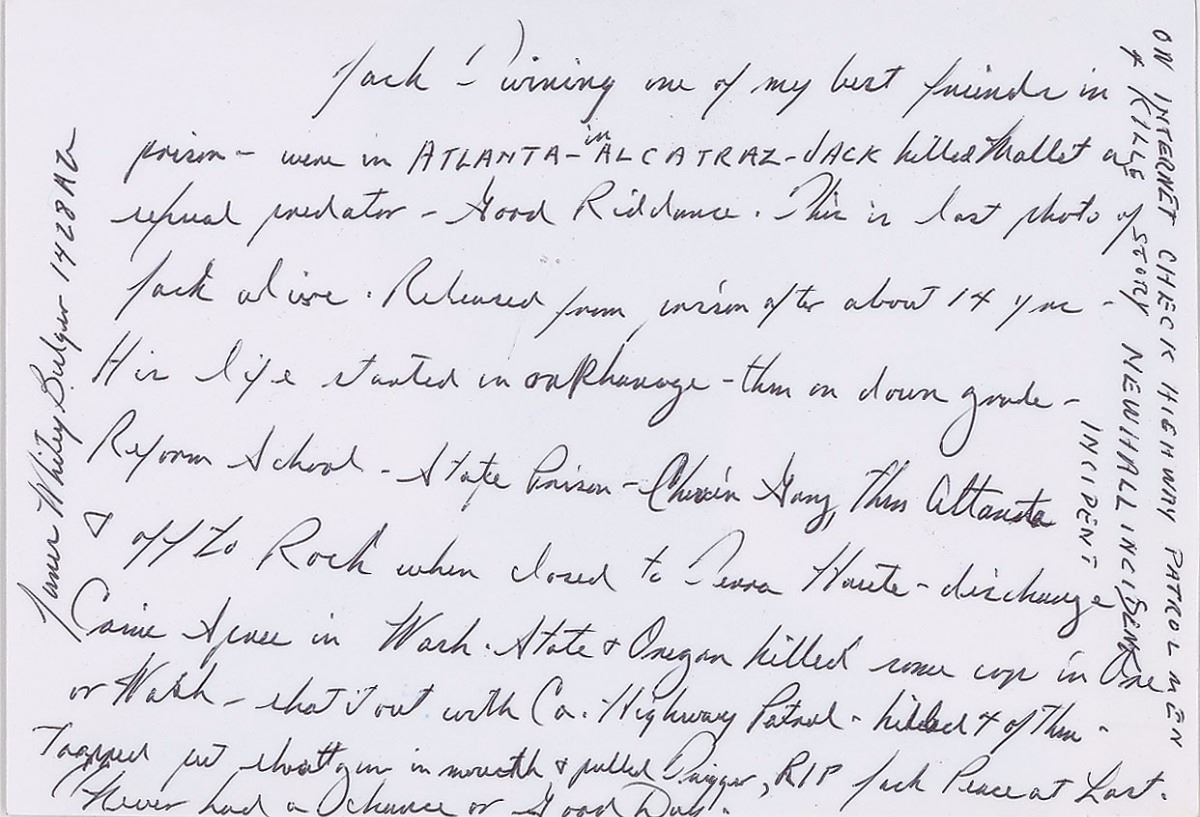 Jack Twining one of my best friends in
prison - were in ATLANTA - in ALCATRAZ - JACK killed Mallet a
sexual predator - Good Riddance. This is last photo of
Jack alive. Released from prison after about 14 yrs -
His life started in orphanage - then on down grade -
Reform School - State Prison - Chain Gang, then Atlanta
& off to Rock when closed to Terra Haute - discharge
Crime Spree in Wash. State & Oregon killed some cop in Ore
or Wash - shot it out with Ca. Highway Patrol - killed 4 of them -
Trapped put shottgun in mouth & pulled Trigger, RIP Jack Peace at Last.
Never had a chance or Good Day.
James Whitey Bulger 1428 AZ
ON INTERNET CHECK HIGHWAY PATROL MEN
4 KILLE STORY NEWHALL INCIDENT
INCIDENT